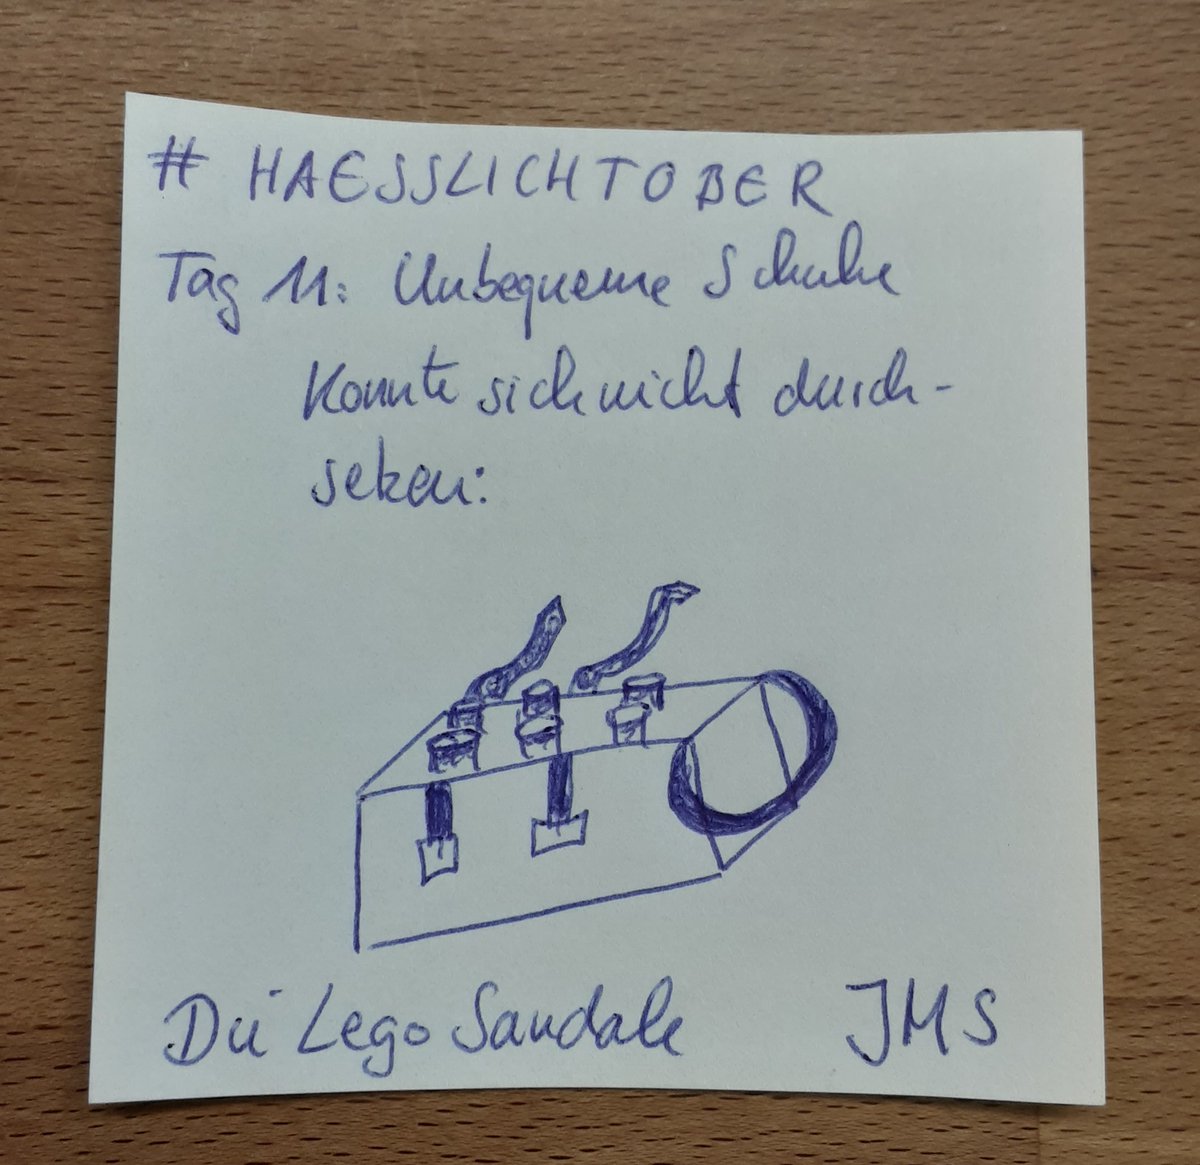 # HAESSLICHTOBER
Tag 11: Unbequeme Schuhe
Konnte sich nicht durch-
setzen:
Die Lego Sandale JMS